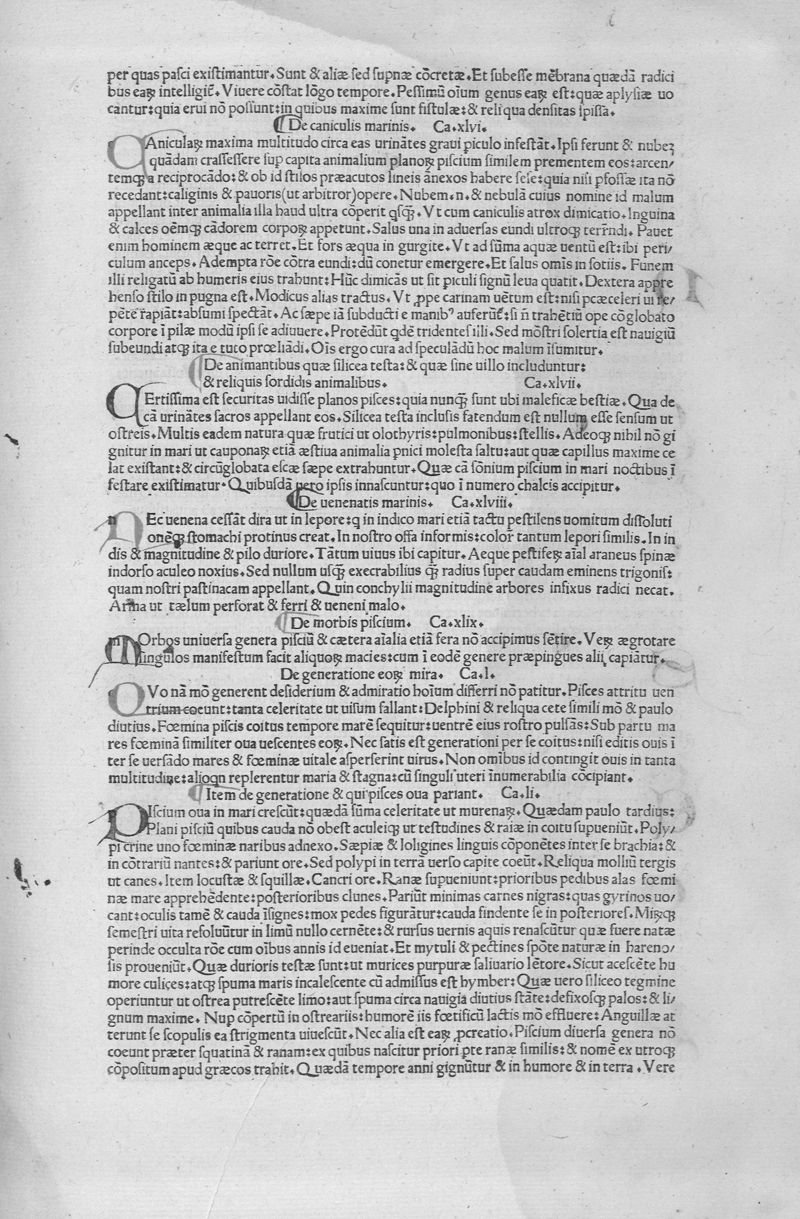 per quas pasci existimantur. Sunt & aliæ sed supnæ cōcretæ. Et subesse mēbrana quædā radici
bus eaꝝ intelligit̄. Viuere cōstat lōgo tempore. Pessimū oīum genus eaꝝ est: quæ aplysiæ uo
cantur: quia erui nō possunt: in quibus maxime sunt fistulæ: & reliqua densitas ipissa.
¶ De caniculis marinis. Ca. xlvi.
CAniculaꝝ maxima multitudo circa eas urinātes graui piculo infestāt. Ipsi ferunt & nubeꝫ
quādam crassessere sup capita animalium planoꝝ piscium similem prementem eos: arcen/
temqꝫ a reciprocādo: & ob id stilos præacutos lineis ānexos habere sese: quia nisi pfossæ ita nō
recedant: caliginis & pauoris (ut arbitror) opere. Nubem .n. & nebulā cuius nomine id malum
appellant inter animalia illa haud ultra cōperit qsqꝫ. Vt cum caniculis atrox dimicatio. Inguina
& calces oēmqꝫ cādorem corpoꝝ appetunt. Salus una in aduersas eundi ultroqꝫ terrēndi. Pauet
enim hominem æque ac terret. Et fors æqua in gurgite. Vt ad sūma aquæ uentū est: ibi peri/
culum anceps. Adempta rōe cōtra eundi: dū conetur emergere. Et salus omīs in sotiis. Funem
illi religatū ab humeris eius trahunt: Hūc dimicās ut sit piculi signū leua quatit. Dextera appre
henso stilo in pugna est. Modicus alias tractus. Vt ꝓpe carinam uētum est: nisi pcæceleri ui re/
pēte rapiāt: absumi spectāt. Ac sæpe iā subducti e manibꝰ auferūt̄: si ñ trahētiū ope cōglobato
corpore ī pilæ modū ipsi se adiuuere. Protēdūt qdē tridentes illi. Sed mōstri solertia est nauigiū
subeundi atqꝫ ita e tuto prœliādi. Oīs ergo cura ad speculādū hoc malum īsumitur.
¶ De animantibus quæ silicea testa: & quæ sine uillo includuntur:
& reliquis sordidis animalibus. Ca. xlvii.
CErtissima est securitas uidisse planos pisces: quia nunqꝫ sunt ubi maleficæ bestiæ. Qua de
cā urinātes sacros appellant eos. Silicea testa inclusis fatendum est nullum esse sensum ut
ostreis. Multis eadem natura quæ frutici ut olothyris: pulmonibus: stellis. Adeoqꝫ nihil nō gi
gnitur in mari ut cauponaꝝ etiā æstiua animalia pnici molesta saltu: aut quæ capillus maxime ce
lat existant: & circūglobata escæ sæpe extrahuntur. Quæ cā sōnium piscium in mari noctibus ī
festare existimatur. Quibusdā uero ipsis innascuntur: quo ī numero chalcis accipitur.
¶ De uenenatis marinis. Ca. xlviii.
NEc uenena cessāt dira ut in lepore: q in indico mari etiā tactu pestilens uomitum dissoluti
onēqꝫ stomachi protinus creat. In nostro offa informis: color tantum lepori similis. In in
dis & magnitudine & pilo duriore. Tātum uiuus ibi capitur. Aeque pestifeꝝ aīal araneus spinæ
indorso aculeo noxius. Sed nullum usqꝫ execrabilius qꝫ radius super caudam eminens trigonis:
quam nostri pastinacam appellant. Quin conchylii magnitudine arbores infixus radici necat.
Arma ut tælum perforat & ferri & ueneni malo.
¶ De morbis piscium. Ca. xlix.
MOrbos uniuersa genera pisciū & cætera aīalia etiā fera nō accipimus sētire. Veꝝ ægrotare
singulos manifestum facit aliquoꝝ macies: cum ī eodē genere præpingues alii capiātur.
De generatione eoꝝ mira. Ca. l.
QVo nā mō generent desiderium & admiratio hoīum differri nō patitur. Pisces attritu uen
trium coeunt: tanta celeritate ut uisum fallant: Delphini & reliqua cete simili mō & paulo
diutius. Fœmina piscis coitus tempore marē sequitur: uentrē eius rostro pulsās: Sub partu ma
res fœminā similiter oua uescentes eoꝝ. Nec satis est generationi per se coitus: nisi editis ouis ī
ter se uersādo mares & fœminæ uitale asperserint uirus. Non omībus id contingit ouis in tanta
multitudine: alioqn replerentur maria & stagna: cū singuli uteri īnumerabilia cōcipiant.
¶ Item de generatione & qui pisces oua pariant. Ca. li.
PIscium oua in mari crescūt: quædā sūma celeritate ut murenaꝝ. Quædam paulo tardius:
Plani pisciū quibus cauda nō obest aculeiqꝫ ut testudines & raiæ in coitu supueniūt. Poly/
pi crine uno fœminæ naribus adnexo. Sæpiæ & loligines linguis cōponētes inter se brachia: &
in cōtrariū nantes: & pariunt ore. Sed polypi in terrā uerso capite coeūt. Reliqua molliū tergis
ut canes. Item locustæ & squillæ. Cancri ore. Ranæ supueniunt: prioribus pedibus alas fœmi
næ mare apprehēdente: posterioribus clunes. Pariūt minimas carnes nigras: quas gyrinos uo/
cant: oculis tamē & cauda īsignes: mox pedes figurātur: cauda findente se in posteriores. Miꝝqꝫ
semestri uita resoluūtur in limū nullo cernēte: & rursus uernis aquis renascūtur quæ fuere natæ
perinde occulta rōe cum oībus annis id eueniat. Et mytuli & pectines spōte naturæ in hareno/
sis proueniūt. Quæ durioris testæ sunt: ut murices purpuræ saliuario lētore. Sicut acescēte hu
more culices: atqꝫ spuma maris incalescente cū admissus est hymber: Quæ uero siliceo tegmine
operiuntur ut ostrea putrescēte limo: aut spuma circa nauigia diutius stāte: defixosqꝫ palos: & li/
gnum maxime. Nup cōpertū in ostreariis: humorē iis fœtificū lactis mō effluere: Anguillæ at
terunt se scopulis ea strigmenta uiuescūt. Nec alia est eaꝝ ꝓcreatio. Piscium diuersa genera nō
coeunt præter squatinā & ranam: ex quibus nascitur priori pte ranæ similis: & nomē ex utroqꝫ
cōpositum apud græcos trahit. Quædā tempore anni gignūtur & in humore & in terra. Vere